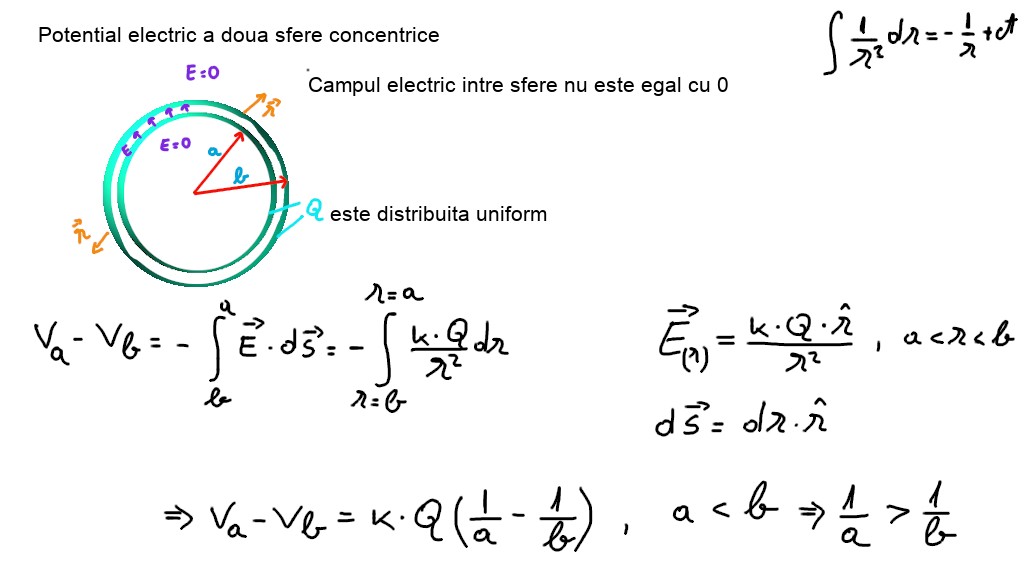 Potential electric a doua sfere concentrice
∫ 1/r² dr = - 1/r + ct
E=0
Campul electric intre sfere nu este egal cu 0
r⃗
E
E=0
a
b
Q este distribuita uniform
r⃗
V_a - V_b = - ∫_b^a E⃗ · ds⃗ = - ∫_{r=b}^{r=a} k·Q/r² dr
E⃗_(r) = k·Q·r̂/r² , a<r<b
ds⃗ = dr·r̂
⇒ V_a - V_b = k·Q(1/a - 1/b) , a < b ⇒ 1/a > 1/b